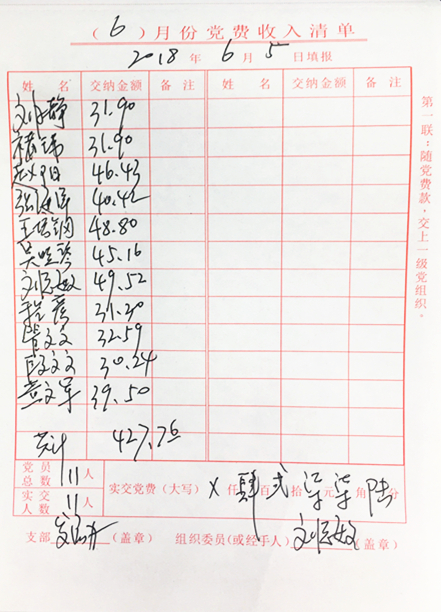 (6)月份党费收入清单
2018年6月5日填报
姓 名 交纳金额 备 注 姓 名 交纳金额 备 注
刘静 31.90
31.90
赵 46.43
张 40.42
王 48.80
吴 45.16
刘 敏 49.52
程 31.30
文文 32.59
段文文 30.24
袁文军 39.50
共计 427.76
党员总数 11人
实交人数 11人
实交党费(大写) × 仟肆百贰拾柒元柒角陆分
支部 (盖章) 组织委员(或经手人) 刘 敏 (盖章)
第一联:随党费款,交上一级党组织。